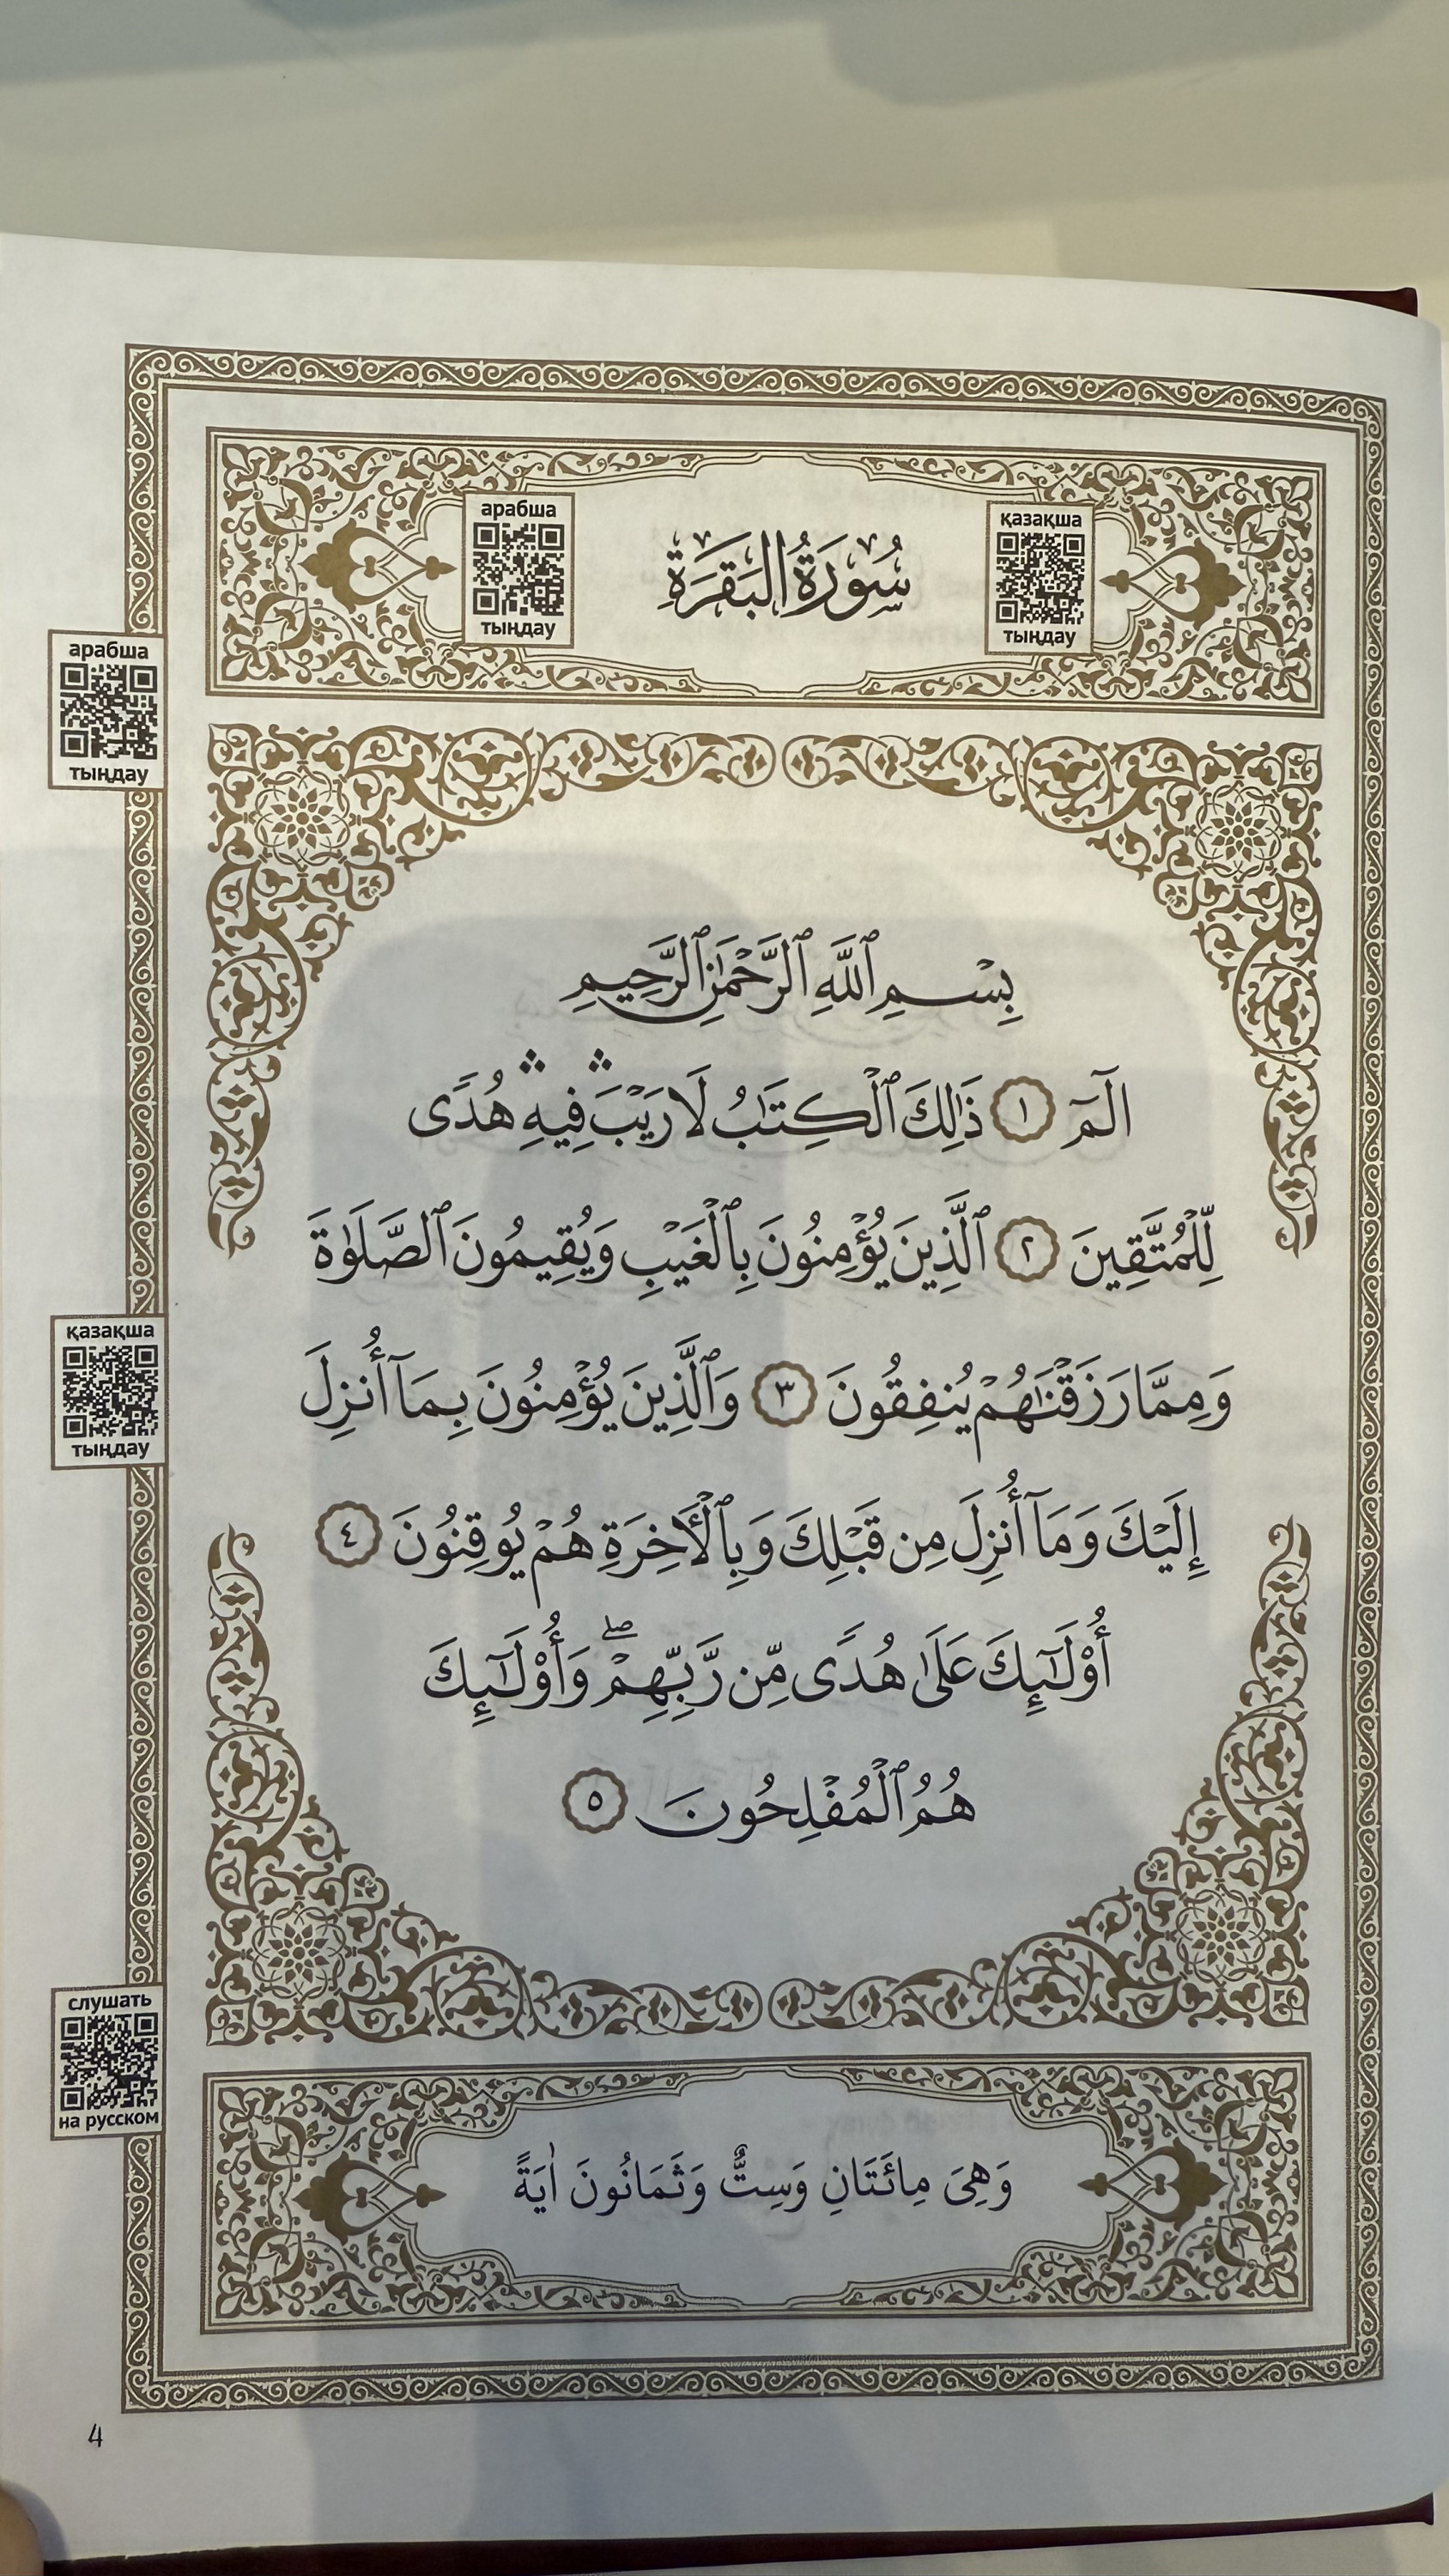 арабша
тыңдау
سُورَةُ البَقَرَةِ
қазақша
тыңдау
арабша
тыңдау
بِسْمِ ٱللَّهِ ٱلرَّحْمَٰنِ ٱلرَّحِيمِ
الٓمٓ ١ ذَٰلِكَ ٱلْكِتَٰبُ لَا رَيْبَ ۛ فِيهِ ۛ هُدًى
لِّلْمُتَّقِينَ ٢ ٱلَّذِينَ يُؤْمِنُونَ بِٱلْغَيْبِ وَيُقِيمُونَ ٱلصَّلَوٰةَ
وَمِمَّا رَزَقْنَٰهُمْ يُنفِقُونَ ٣ وَٱلَّذِينَ يُؤْمِنُونَ بِمَآ أُنزِلَ
қазақша
тыңдау
إِلَيْكَ وَمَآ أُنزِلَ مِن قَبْلِكَ وَبِٱلْأَخِرَةِ هُمْ يُوقِنُونَ ٤
أُو۟لَٰٓئِكَ عَلَىٰ هُدًى مِّن رَّبِّهِمْ ۖ وَأُو۟لَٰٓئِكَ
هُمُ ٱلْمُفْلِحُونَ ٥
слушать
на русском
وَهِىَ مِائَتَانِ وَسِتٌّ وَثَمَانُونَ اٰيَةً
4